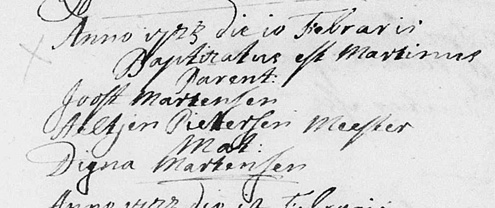 Anno 1723 die 10 Febrarii
Baptitatus est Martinus
Parent:
Joost Martensen
Aeltjen Pietersen Meester
Mat:
Digna Martensen
Anno 1723 die 12 Febrarii